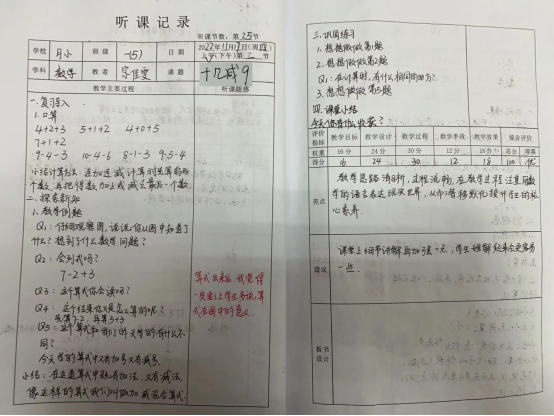 听课记录
听课节数：第25节
学校 月小 班级 一(5) 日期 2022年11月17日(周四)
上午(下午)第二节
学科 数学 教者 课题 十几减9
教学主要过程 听课随感
一.复习导入
1.口算
4+2+3 5+1+2 4+0+5
7+1+2
9-4-3 10-4-6 8-1-3 9-5-4
小结计算方法：连加连减计算时先算前两
个数，再把得数加上或减去最后一个数。
二.探索新知
1.教学例题
Q1：仔细观察图，说说你从图中知道了
什么？想到了什么数学问题？
Q2：会列式吗？
7-2+3
Q3：这个算式你会读吗？
Q4：这个结果你又是怎么算的呢？
先算7-2，再算5+3
Q5：这个算式和我们昨天学的有什么不
同？
今天学的算式中又有加号又有减号
小结：在这道算式中既有加法，又有减法，
像这样的算式我们叫做加减混合算式
算式出来后，我觉得
一定要让学生多说算
式在图中的意义
三.巩固练习
1.想想做做第1题
2.想想做做第2题
Q1：在计算时，有什么相同的地方？
3.想想做做第5题
四.课堂小结
今天你有什么收获？
评价指标 教学目标 教学设计 教学过程 教学手段 教学效果 综合评价
权重 16分 24分 30分 12分 18分 总分 等第
得分 16 24 30 12 18 100 优
亮点
教学思路清晰，过程流畅，在教学过程注重用数
学的语言表达现实世界，从而潜移默化提升生的核
心素养。
建议
课堂上细节讲解再加强一点，学生理解起来会更容易
一点。
板书设计